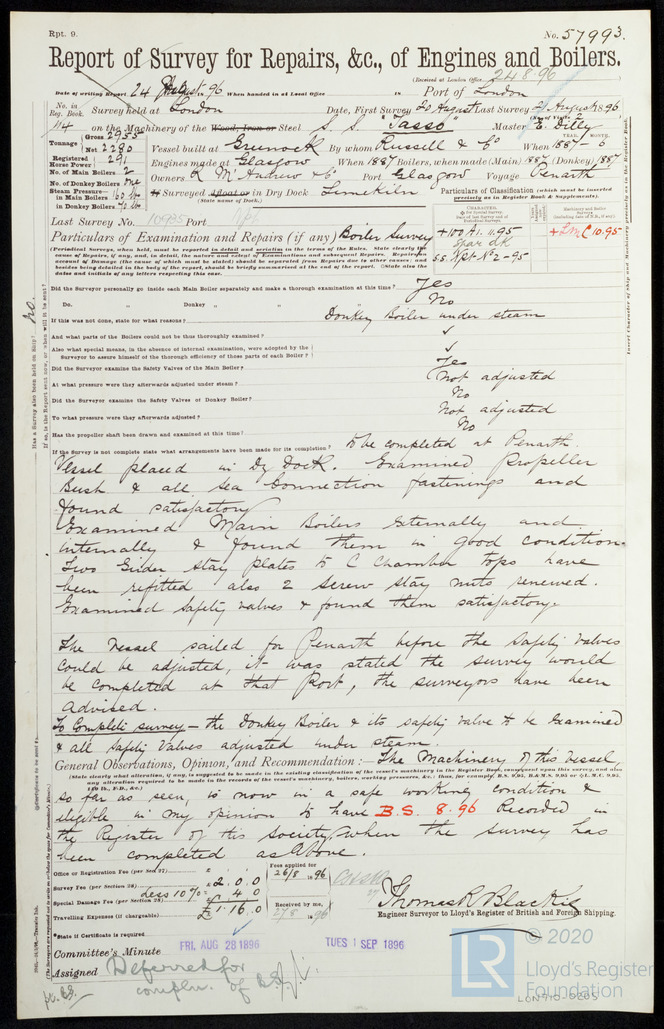 Rpt. 9.
No. 57993.
Report of Survey for Repairs, &c., of Engines and Boilers.
(Received at London Office 24 8 · 96
Date of writing Report 24 August 1896 When handed in at Local Office IN Port of London
No. in Reg. Book. Survey held at London Date, First Survey 20 August Last Survey 21 August 1896
44 on the Machinery of the Wood, Iron or Steel S. S. "Tasso" Master E. Dilly
Tonnage Gross 2953 Net 2280 Vessel built at Greenock By whom Russell & Co When 1887 - 6
Registered Horse Power 291 Engines made at Glasgow When 1887 Boilers, when made (Main) 1887 (Donkey) 1887
No. of Main Boilers 2 Owners R McAndrew & Co Port Glasgow Voyage Penarth
No. of Donkey Boilers one
Steam Pressure in Main Boilers 160 lb
in Donkey Boilers
If Surveyed Afloat or in Dry Dock Limekiln
(State name of Dock.)
Particulars of Classification (which must be inserted precisely as in Register Book & Supplements).
Last Survey No. 10985 Port
Particulars of Examination and Repairs (if any) Boiler Survey
+100 A1. 11.95
Spar dk
S.S. Npt No 2-95
+LMC 10.95
Did the Surveyor personally go inside each Main Boiler separately and make a thorough examination at this time? Yes
Do. " Donkey " " No
If this was not done, state for what reasons? Donkey Boiler under steam
And what parts of the Boilers could not be thus thoroughly examined? ✓
Also what special means, in the absence of internal examination, were adopted by the Surveyor to assure himself of the thorough efficiency of those parts of each Boiler? ✓
Did the Surveyor examine the Safety Valves of the Main Boiler? Yes
At what pressure were they afterwards adjusted under steam? Not adjusted
Did the Surveyor examine the Safety Valves of Donkey Boiler? No
To what pressure were they afterwards adjusted? Not adjusted
Has the propeller shaft been drawn and examined at this time? No
If the Survey is not complete state what arrangements have been made for its completion? To be completed at Penarth
Vessel placed in Dry Dock. Examined Propeller
Bush & all sea Connection fastenings and
found satisfactory
Examined Main Boilers Externally and
internally & found them in good condition
Two Girder stay plates to C Chamber tops have
been refitted also 2 Screw stay nuts renewed.
Examined Safety valves & found them satisfactory.
The Vessel sailed for Penarth before the Safety Valves
could be adjusted, it was stated the survey would
be completed at that Port, the surveyors have been
advised.
To Complete survey – the Donkey Boiler & its safety valve to be Examined
& all Safety Valves adjusted under steam.
General Observations, Opinion, and Recommendation :— The Machinery of this Vessel
so far as seen, is now in a safe working condition &
eligible in my opinion to have B.S. 8.96 Recorded in
the Register of this Society, when the survey has
been completed as above.
Office or Registration Fee (per Sec 27)
Survey Fee (per Section 28) 2.0.0
Less 10% 4.0
Special Damage Fee (per Section 28)
Travelling Expenses (if chargeable) £1.16.0
Fees applied for 26/8 1896
Received by me, 27/8 1896
Thomas R Blackie
Engineer Surveyor to Lloyd's Register of British and Foreign Shipping.
*State if Certificate is required
Committee's Minute FRI. AUG 28 1896 TUES 1 SEP 1896
Assigned Deferred for
compln. of B.S.
© 2020
LR Lloyd's Register
Foundation
LON710-0205